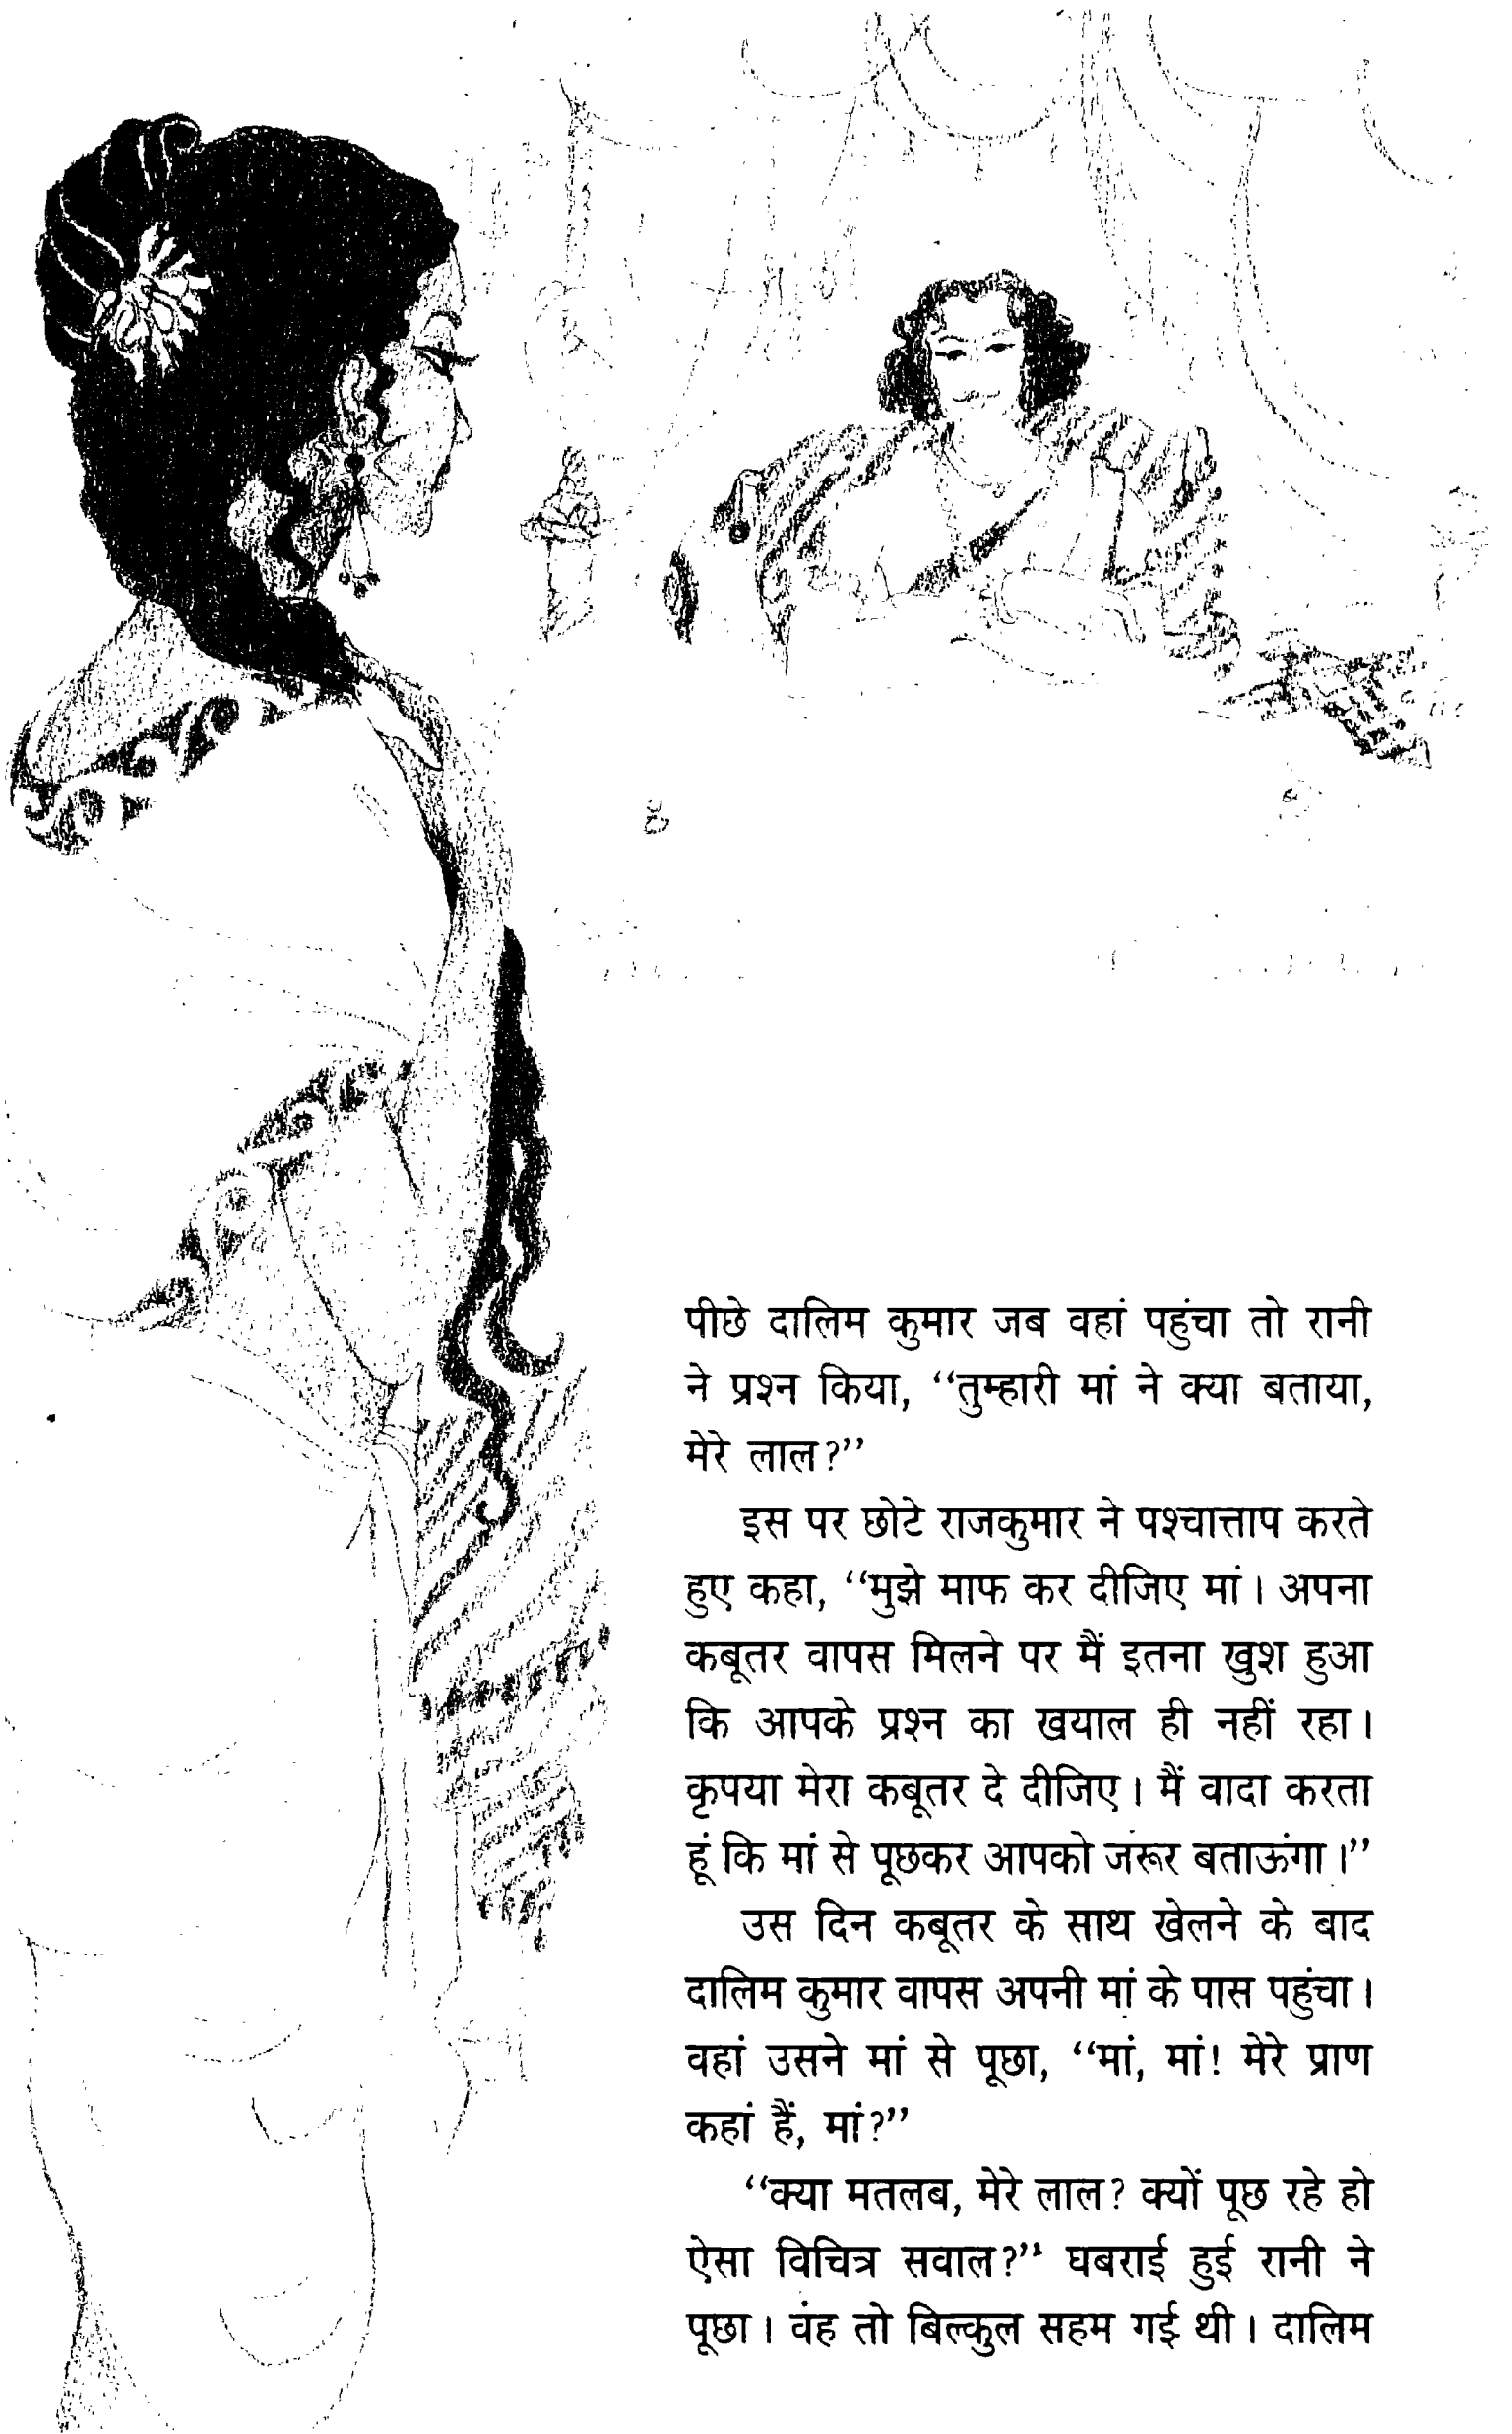 पीछे दालिम कुमार जब वहां पहुंचा तो रानी
ने प्रश्न किया, “तुम्हारी मां ने क्या बताया,
मेरे लाल?”
इस पर छोटे राजकुमार ने पश्चात्ताप करते
हुए कहा, “मुझे माफ कर दीजिए मां। अपना
कबूतर वापस मिलने पर मैं इतना खुश हुआ
कि आपके प्रश्न का खयाल ही नहीं रहा।
कृपया मेरा कबूतर दे दीजिए। मैं वादा करता
हूं कि मां से पूछकर आपको जरूर बताऊंगा।”
उस दिन कबूतर के साथ खेलने के बाद
दालिम कुमार वापस अपनी मां के पास पहुंचा।
वहां उसने मां से पूछा, “मां, मां! मेरे प्राण
कहां हैं, मां?”
“क्या मतलब, मेरे लाल? क्यों पूछ रहे हो
ऐसा विचित्र सवाल?” घबराई हुई रानी ने
पूछा। वह तो बिल्कुल सहम गई थी। दालिम